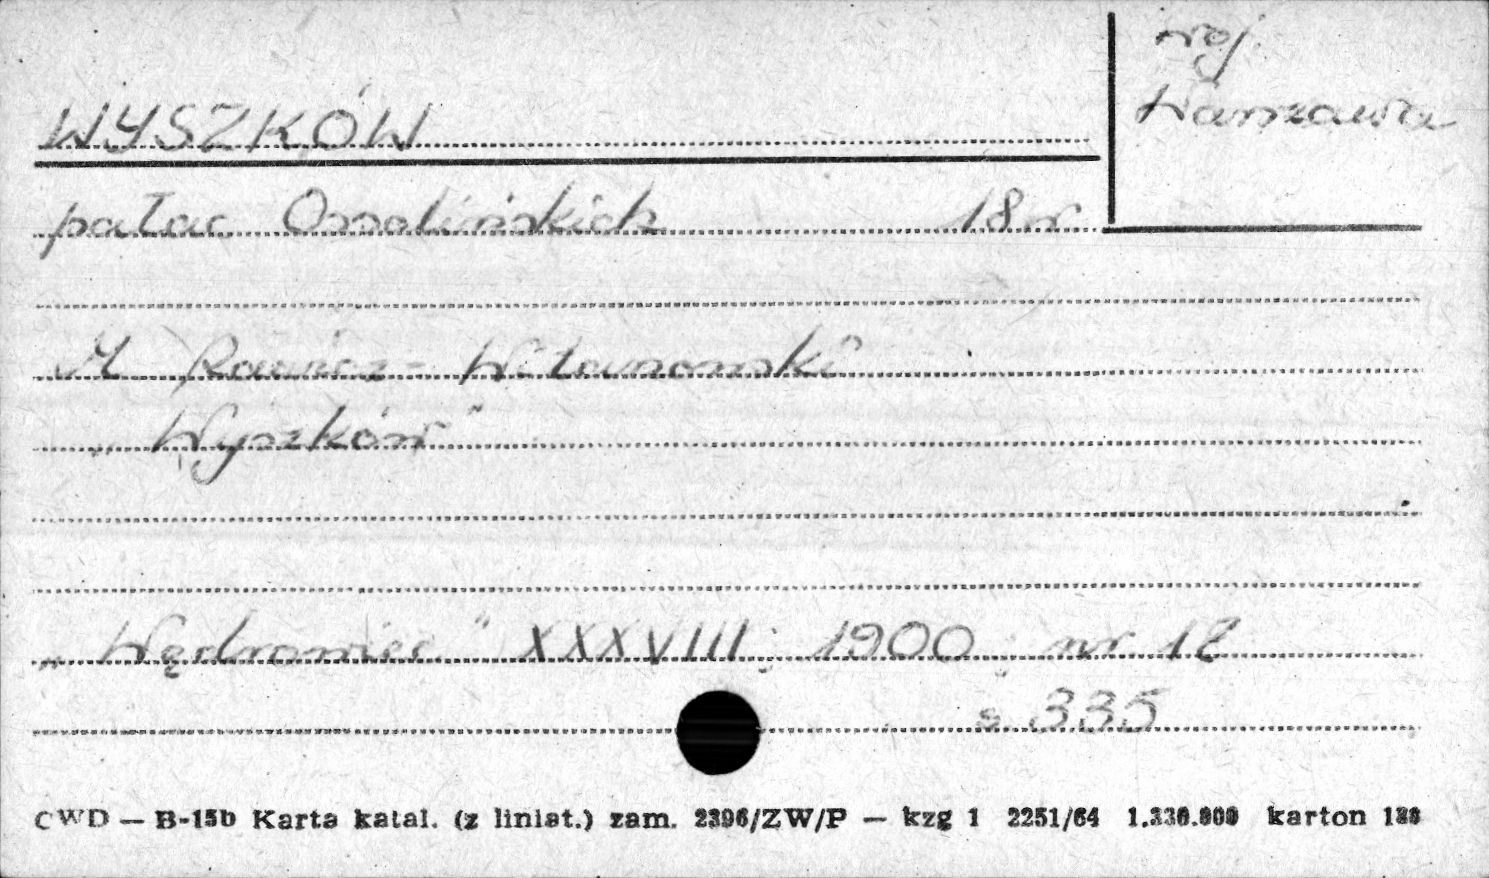 woj
Warszawa
WYSZKÓW
pałac Ossolińskich 18 w.
M. Rawicz-Witanowski
„Wyszków"
„Wędrowiec" XXXVIII; 1900; nr 17
s. 335
CWD — B-15b Karta katal. (z liniat.) zam. 2396/ZW/P — kzg 1 2251/64 karton